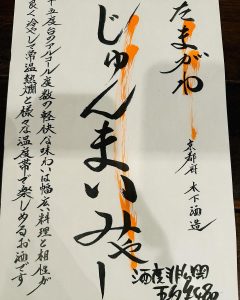 たまがわ
京都府 木下酒造
じゅんまいみやー
十五度台のアルコール度数の軽快な味わいは幅広い料理と相性が
良く冷やして常温熱燗と様々な温度帯で楽しめるお酒です
酒度非公開